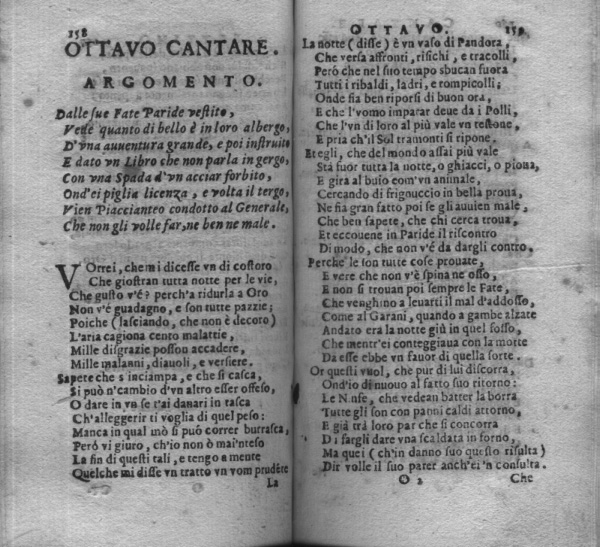 158
OTTAVO CANTARE.
ARGOMENTO.
Dalle sue Fate Paride vestito,
Vede quanto di bello è in loro albergo,
D'vna auuentura grande, e poi instruito
E dato vn Libro che non parla in gergo,
Con vna Spada d'vn acciar forbito,
Ond'ei piglia licenza, e volta il tergo,
Vien Piaccianteo condotto al Generale,
Che non gli volle far, ne ben ne male.
VOrrei, che mi dicesse vn di costoro
Che giostran tutta notte per le vie,
Che gusto v'é? perch'a ridurla a Oro
Non v'é guadagno, e son tutte pazzie;
Poiche (lasciando, che non è decoro)
L'aria cagiona cento malattie,
Mille disgrazie posson accadere,
Mille malanni, diauoli, e versiere.
Sapete che s'inciampa, e che si casca,
Si può n'cambio d'vn altro esser offeso,
O dare in vn se t'ai danari in tasca
Ch'alleggerir ti voglia di quel peso:
Manca in qual mò si può correr burrasca,
Però vi giuro, ch'io non ò mai'nteso
La fin di questi tali, e tengo a mente
Quelche mi disse vn tratto vn vom prudéte
La
OTTAVO. 159
La notte (disse) è vn vaso di Pandora,
Che versa affronti, risichi, e tracolli,
Peró che nel suo tempo sbucan fuora
Tutti i ribaldi, ladri, e rompicolli;
Onde fia ben riporsi di buon ora,
E che l'vomo imparar deue da i Polli,
Che l'vn di loro al più vale vn testone,
E pria ch'il Sol tramonti si ripone.
Et egli, che del mondo assai più vale
Stà fuor tutta la notte, o ghiacci, o pioua,
E gira al buio com'vn animale,
Cercando di frignuccio in bella proua,
Ne fia gran fatto poi se gli auuien male,
Che ben sapete, che chi cerca troua,
Et eccouene in Paride il riscontro
Di modo, che non v'é da dargli contro.
Perchè le son tutte cose prouate,
E vere che non v'è spina ne osso,
E non si trouan poi sempre le Fate,
Che venghino a leuarti il mal d'addosso,
Come al Garani, quando a gambe alzate
Andato era la notte giù in quel fosso,
Che mentr'ei conteggiaua con la morte
Da esse ebbe vn fauor di quella sorte.
Or questi vuol, che pur di lui discorra,
Ond'io di nuouo al fatto suo ritorno:
Le Ninfe, che vedean batter la borra
Tutte gli son con panni caldi attorno,
E già trà loro par che si concorra
Di fargli dare vna scaldata in forno,
Ma quei (ch'in danno suo questo risulta)
Dir volle il suo parer anch'ei 'n consulta.
O 2 Che